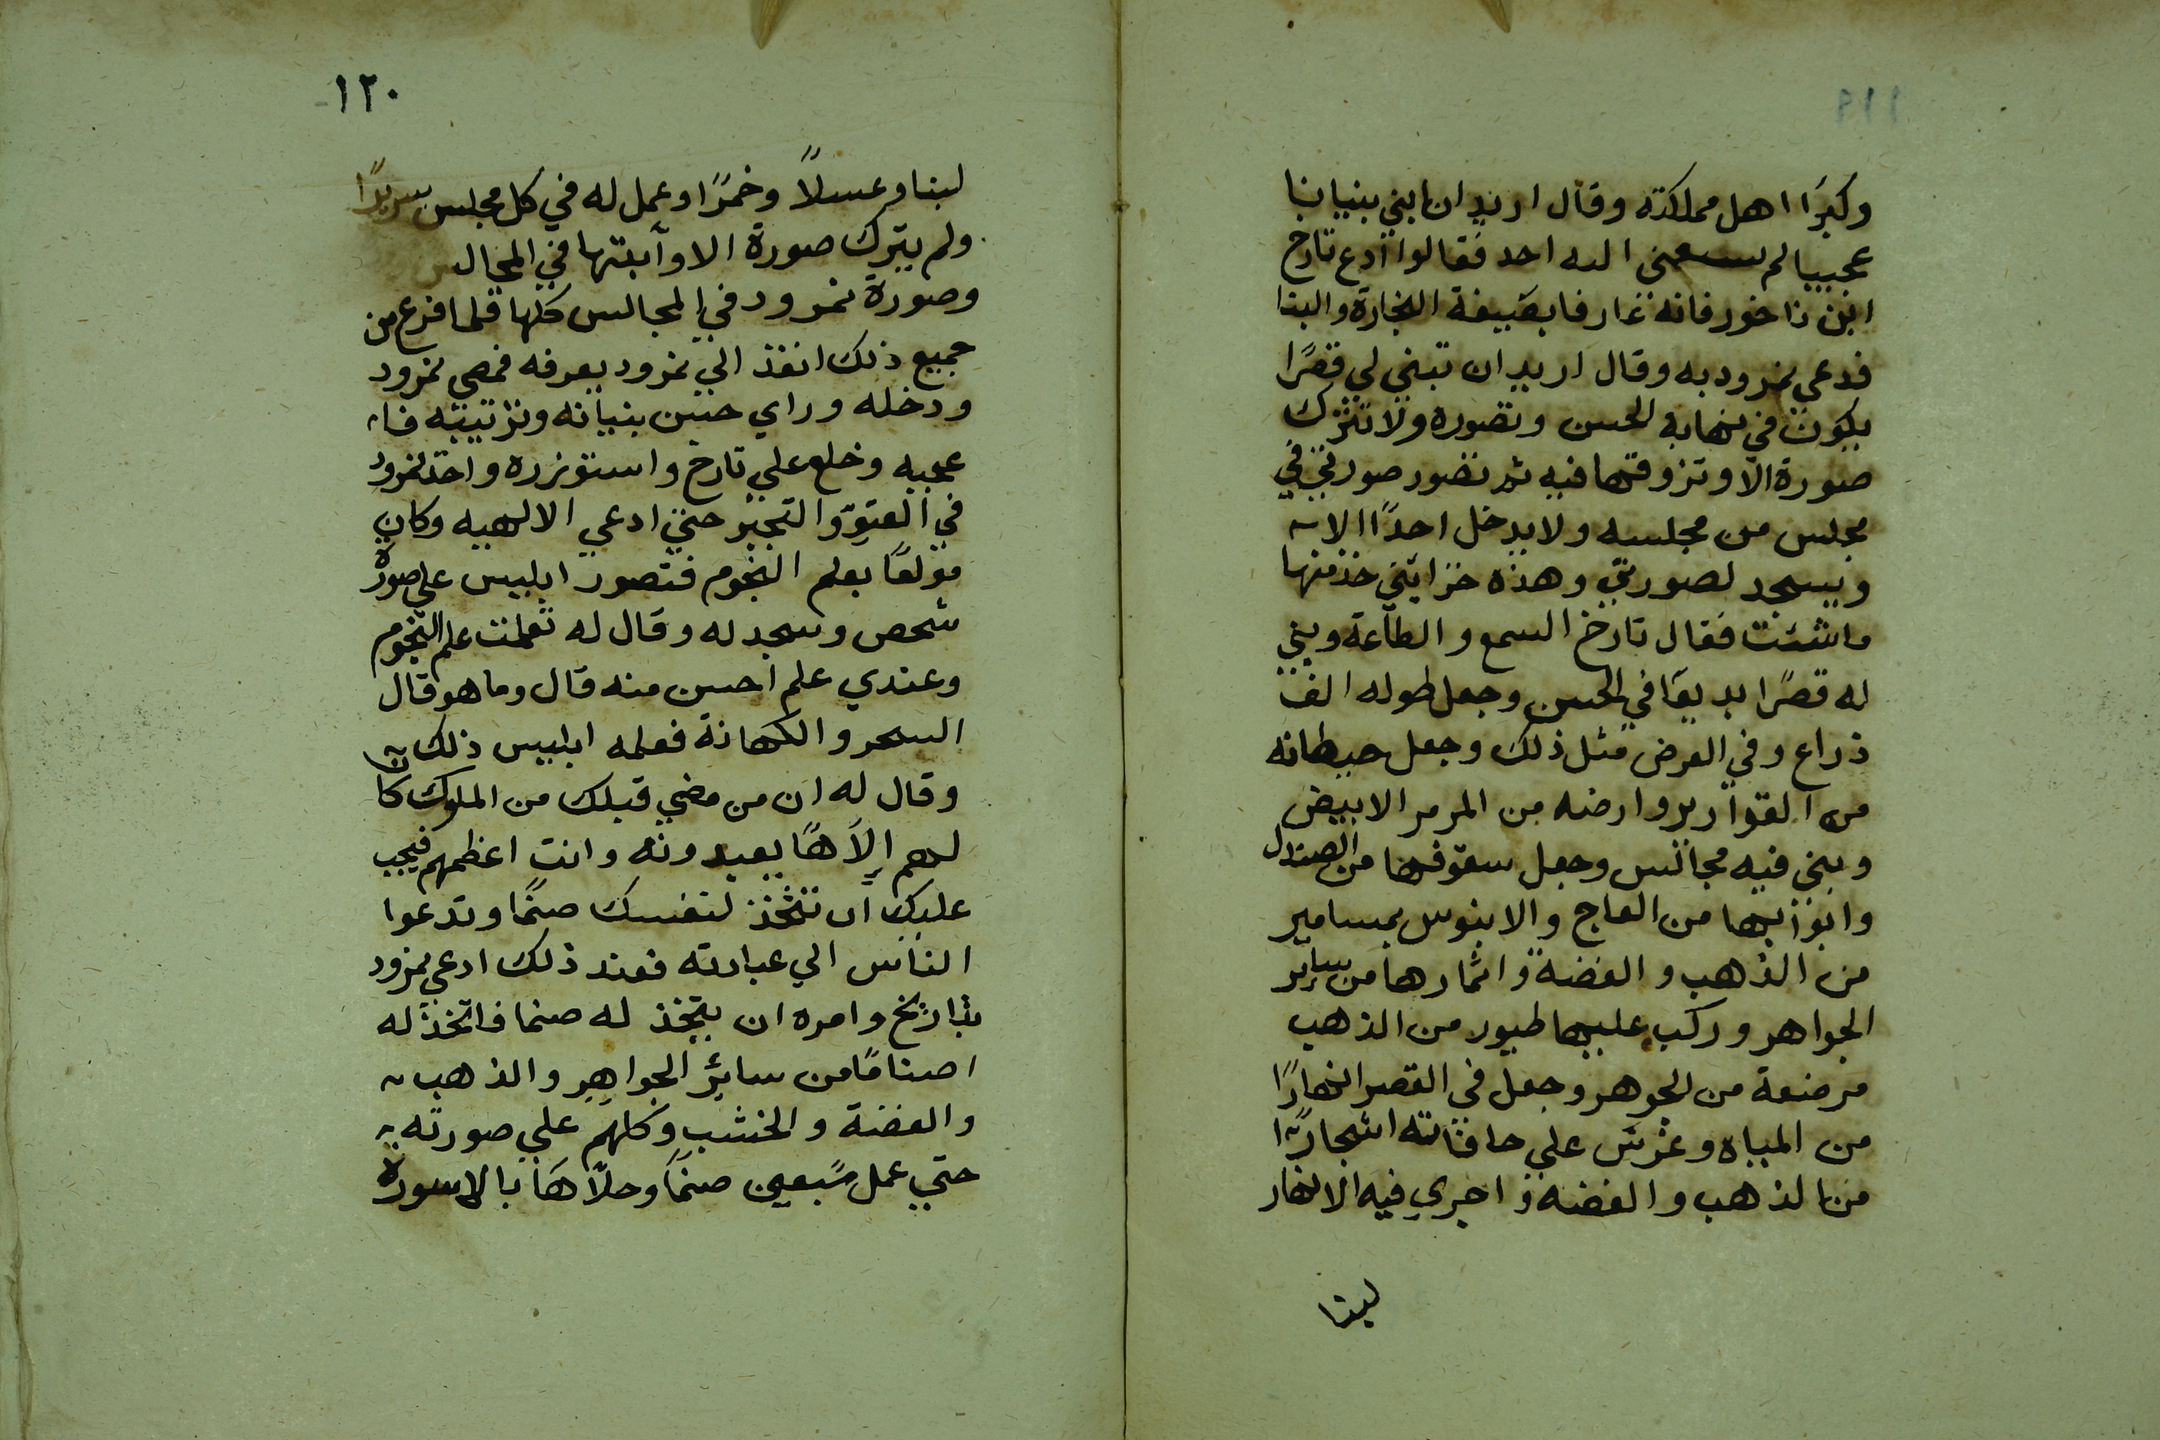 ١١٩
وكبرَا اهل مملكته وقال اريد ان ابني بنيانا
عجيبا لم يسبقني اليه احد فقالوا ادع تارخ
ابن ناخور فانه عارفا بصيفة النجارة والبنا
فدعي نمرود به وقال اريد ان تبني لي قصرًا
يكون في نهاية الحسن وتصوره ولا تترك
صورة الاّ وتزوقها فيه ثم تصور صورتي في
مجلس من مجلسه ولا يدخل احدًا الا
ويسجد لصورتي وهذه خزايني خذ منها
ماشئت فقال تارخ السمع والطاعة وبني
له قصرًا بديعًا في الحسن وجعل طوله الف
ذراع وفي العرض مثل ذلك وجعل حيطانه
من القوارير وارضه من المرمر الابيض
وبني فيه مجالس وجعل سقوفها من الصندل
وابوابها من العاج والابنوس بمسامير
من الذهب والفضة واثمارها من ساير
الجواهر وركب عليها طيور من الذهب
مرضعة من الجوهر وجعل في القصر انهارًا
من المياه وغرس علي حافاته اشجارًا
من الذهب والفضة واجري فيه الانهار
لبنا
١٢٠
لبنا وعسلاً وخمرًا وعمل له في كل مجلس سريرًا
ولم يترك صورة الا واثبتها في المجالس
وصورة نمرود في المجالس كلها فلما فرغ من
جميع ذلك انفذ الي نمرود يعرفه فمضي نمرود
ودخله وراي حسن بنيانه وتزتيبه فا
عجبه وخلع علي تارخ واستوزره واخذ نمرود
في العتوّ والتجبر حتي ادعي الالهيه وكان
مولعًا بعلم النجوم فتصور ابليس علي صورة
شخص وسجد له وقال له تعلمت علم النجوم
وعندي علم احسن منه قال وما هو قال
السحر والكهانة فعلمه ابليس ذلك
وقال له ان من مضي قبلك من الملوك كا
لهم إلاَهًا يعبدونه وانت اعظمهم فيجب
عليك ان تتخذ لنفسك صنمًا وتدعوا
الناس الي عبادته فعند ذلك ادعي نمرود
بتارخ وامره ان يتخذ له صنما فاتخذ له
اصنامًا من سائِر الجواهِر والذهب
والفضة والخشب وكلهم علي صورته
حتي عمل سَبعين صنمًا وحلاّهَا بالاسورة